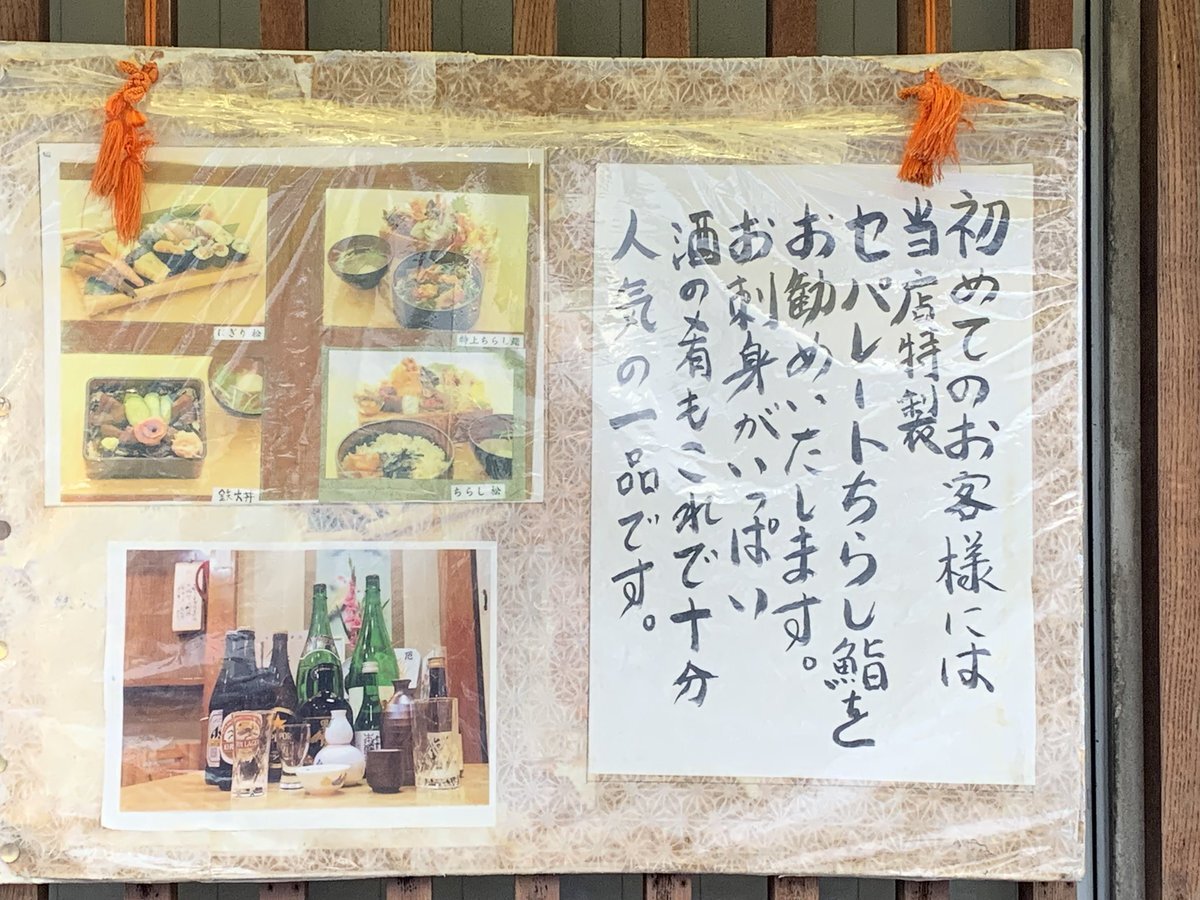 初めてのお客様には
当店特製
セパレートちらし鮨を
お勧めいたします。
お刺身がいっぱい
酒の肴もこれで十分
人気の一品です。
にぎり松
特上ちらし
鉄火丼
ちらし松